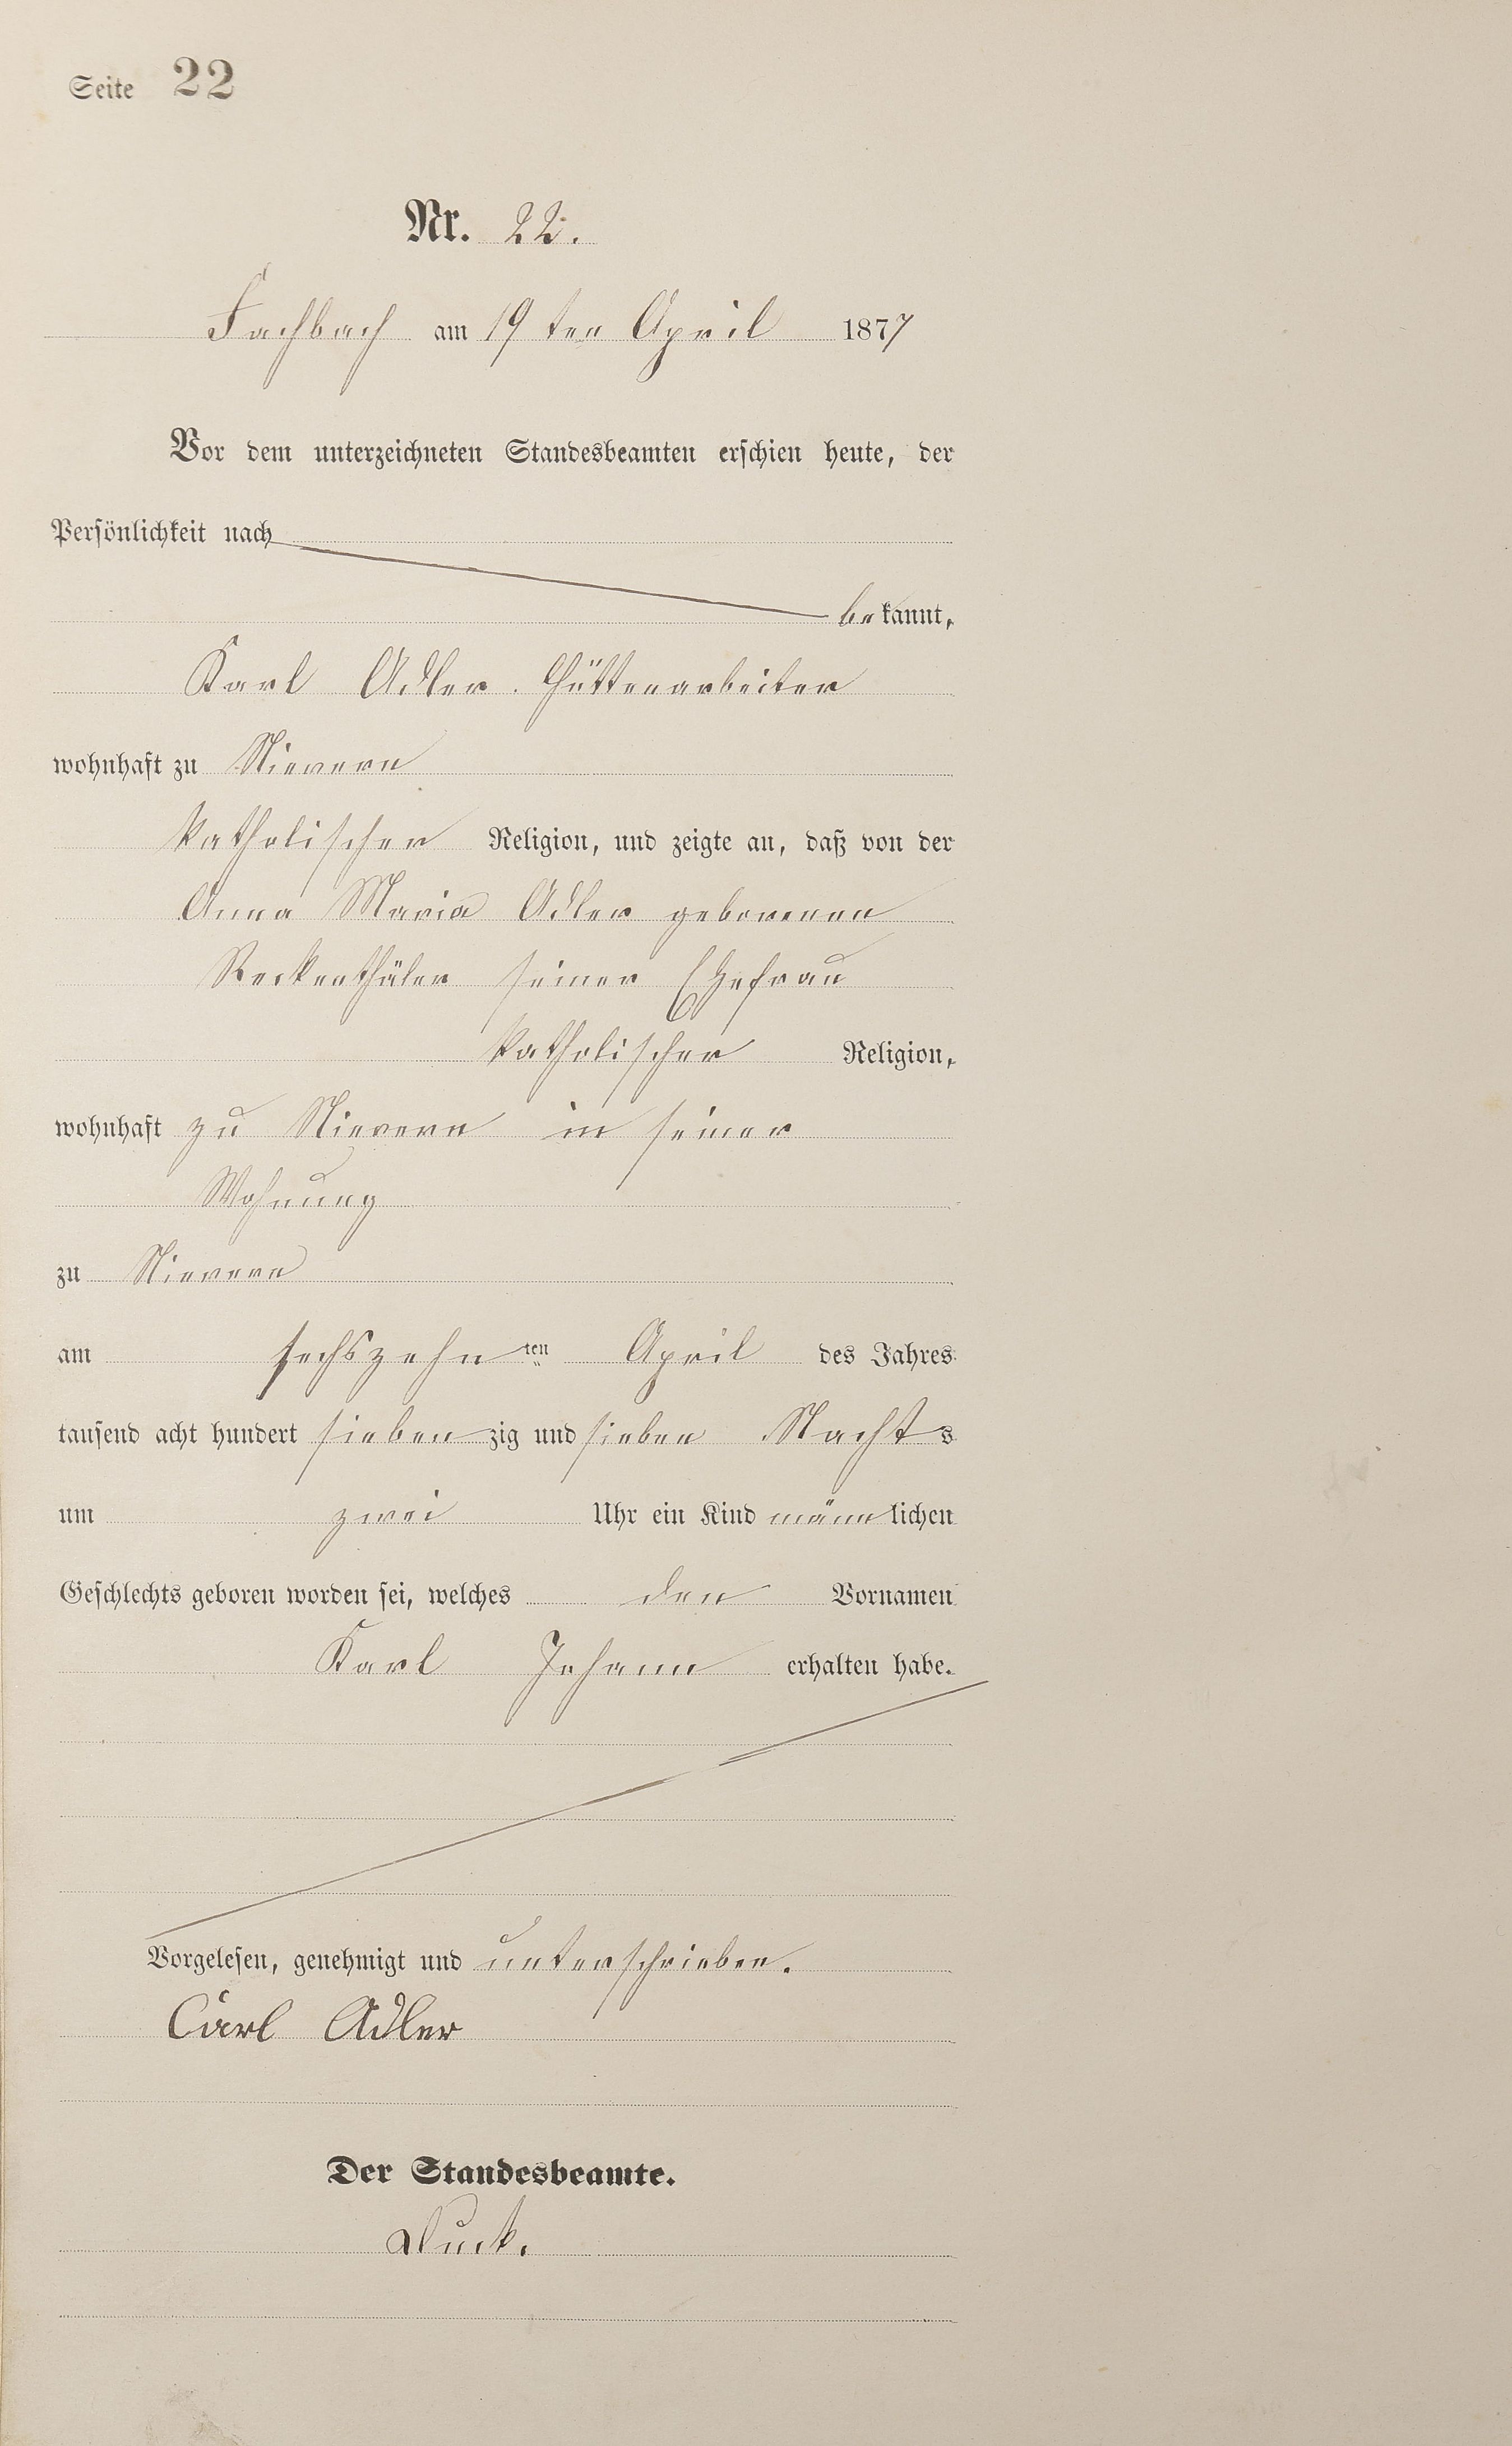 Seite 22
Nr. 22.
Fachbach am 19ten April 1877
Vor dem unterzeichneten Standesbeamten erschien heute, der
Persönlichkeit nach
bekannt,
Karl Adler Hüttenarbeiter
wohnhaft zu Nievern
katholischer Religion, und zeigte an, daß von der
Anna Maria Adler geborenen
Reckenthäler seiner Ehefrau
katholischer Religion,
wohnhaft zu Nievern in seiner
Wohnung
zu Nievern
am sechszehn ten April des Jahres
tausend acht hundert siebenzig und sieben Nachts
um zwei Uhr ein Kind männlichen
Geschlechts geboren worden sei, welches den Vornamen
Karl Johann erhalten habe.
Vorgelesen, genehmigt und unterschrieben.
Carl Adler
Der Standesbeamte.